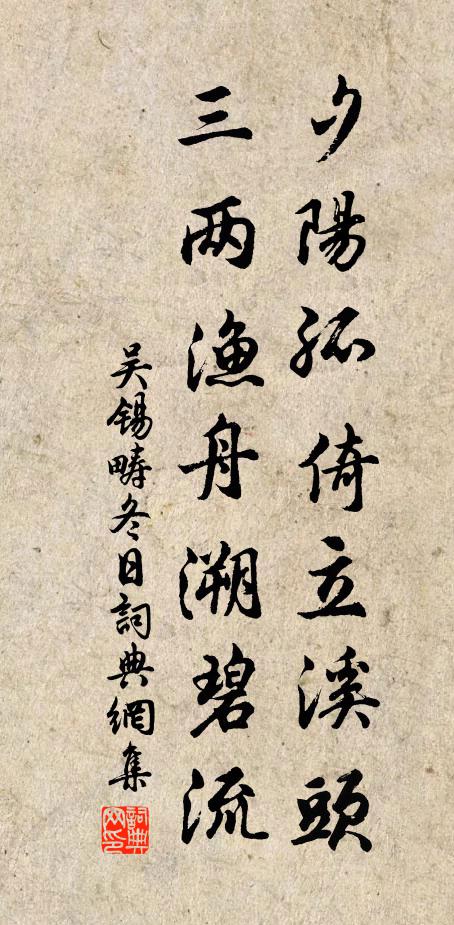 夕陽孤倚立溪頭
三两漁舟溯碧流
吴錫疇冬日詞典網集
詞典网印